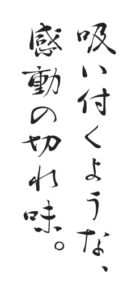 吸い付くような、
感動の切れ味。